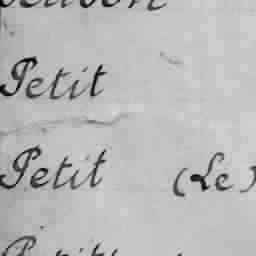 Petit
Petit (Le)